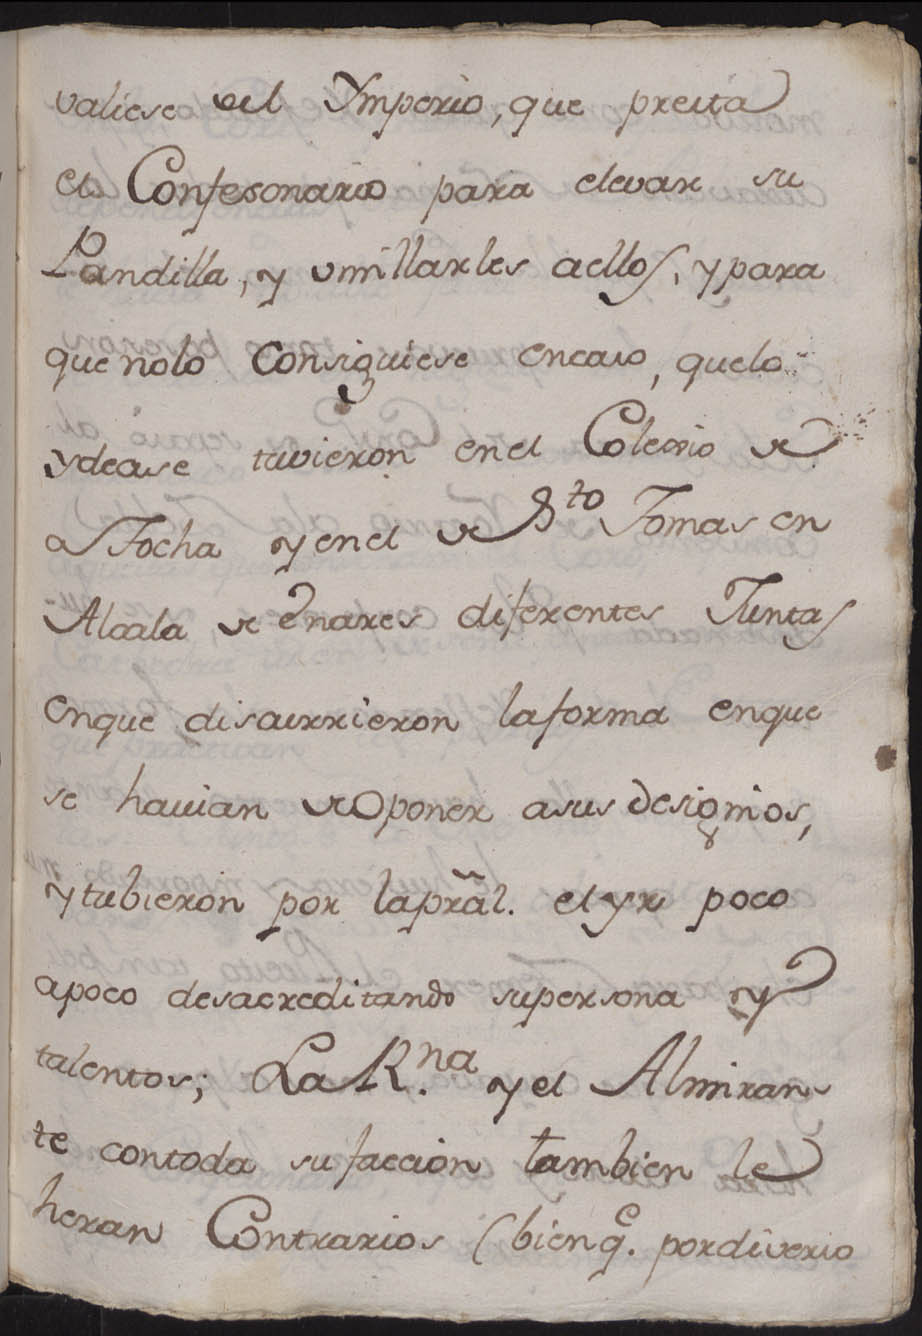 valiese del Ymperio, que presta
el Confesonario para elevar su
Pandilla, y vmillarles aellos, y para
que nolo Consiguiese encaso, quelo
ydease tuvieron enel Colexio de
Atocha y enel de Sto Tomas en
Alcala de enares diferentes Juntas
enque discurrieron laforma enque
se havian de Oponer asus designios,
y tubieron por laprãl. el yr poco
apoco desacreditando supersona y
talentos; La R.na y el Almiran-
te contoda su faccion tambien le
heran Contrarios (bienq.e pordiverso